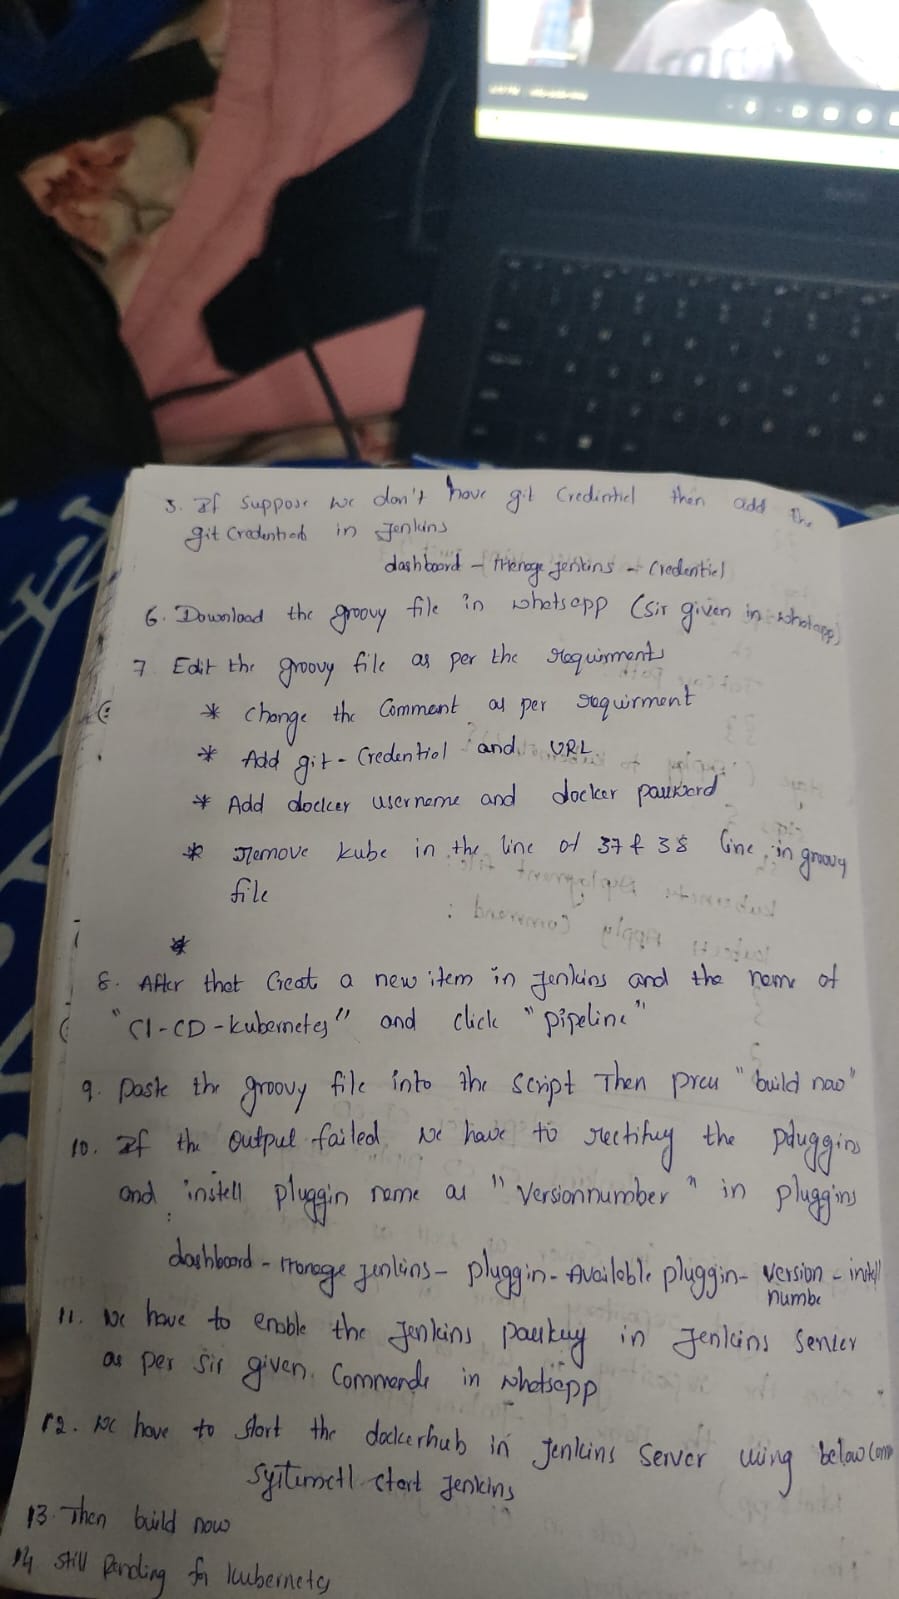 5. If suppose we don't have git Credential then add the
git Credentials in Jenkins
dashboard - Manage Jenkins - Credential
6. Download the groovy file in whatsapp (sir given in whatapp)
7 Edit the groovy file as per the requirments
* Change the Comment as per requirment
* Add git-Credential and URL
* Add docker username and docker password
* Remove kube in the line of 37 & 38 line in groovy
file
*
8. After that Creat a new item in Jenkins and the name of
"CI-CD-kubernetes" and click "pipeline"
9. paste the groovy file into the Script Then press "build now"
10. If the output failed we have to rectifuy the pluggins
and install pluggin name as "Versionnumber" in pluggins
:
dashboard - Manage jenkins - pluggin - Available pluggin - version - install
numbe
11. we have to enable the Jenkins passkey in Jenkins Server
as per sir given Commands in whatsapp
12. we have to start the dockerhub in Jenkins Server using below Com
systemctl start Jenkins
13. Then build now
14 still Pending for kubernetes